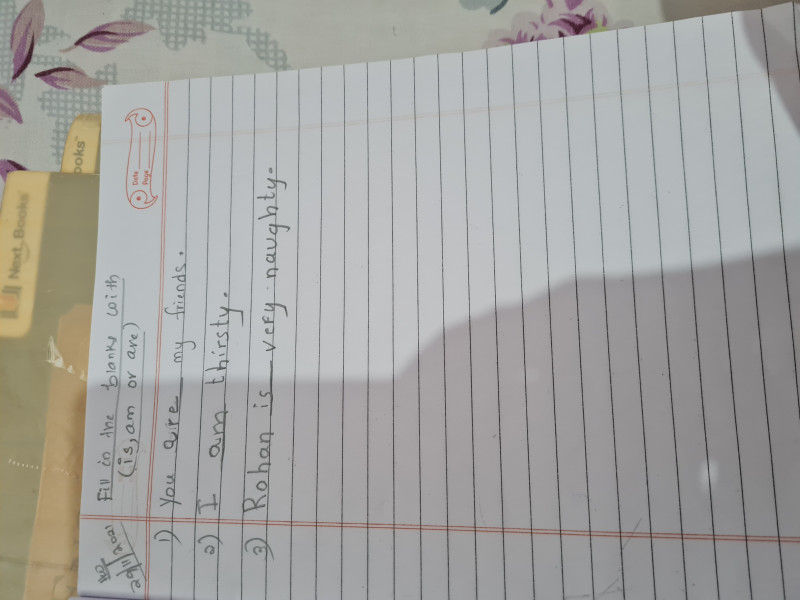 Next Books
ooks
Date
Page
HW
29/11/2021
Fill in the blanks with
(is, am or are)
1) You are my friends.
2) I am thirsty.
3) Rohan is very naughty.